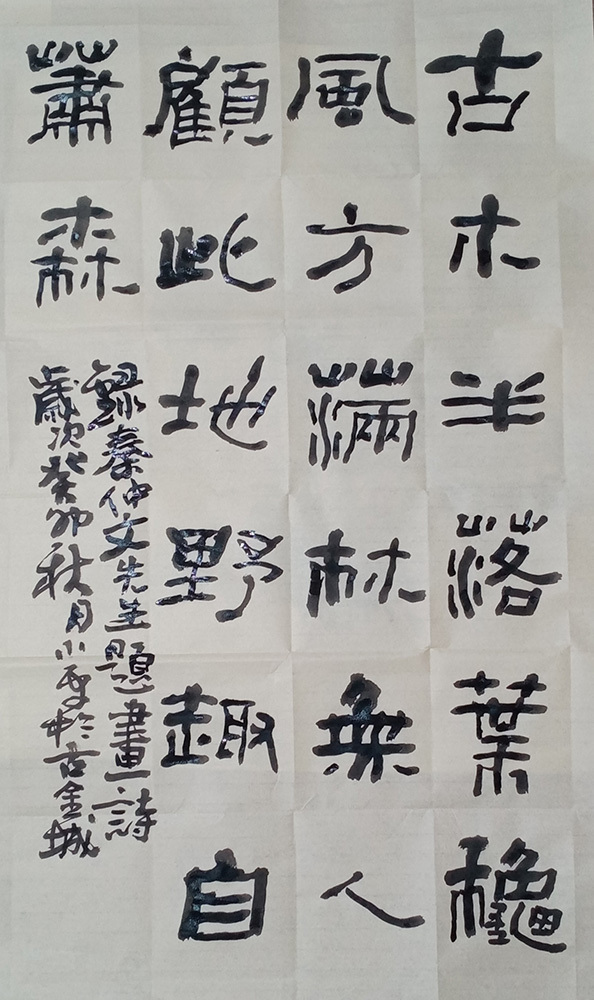 古木半落葉穐
風方滿林無人
顧此地野趣自
蕭森
録秦仲文先生題畫詩
歲次癸卯秋月小於古金城